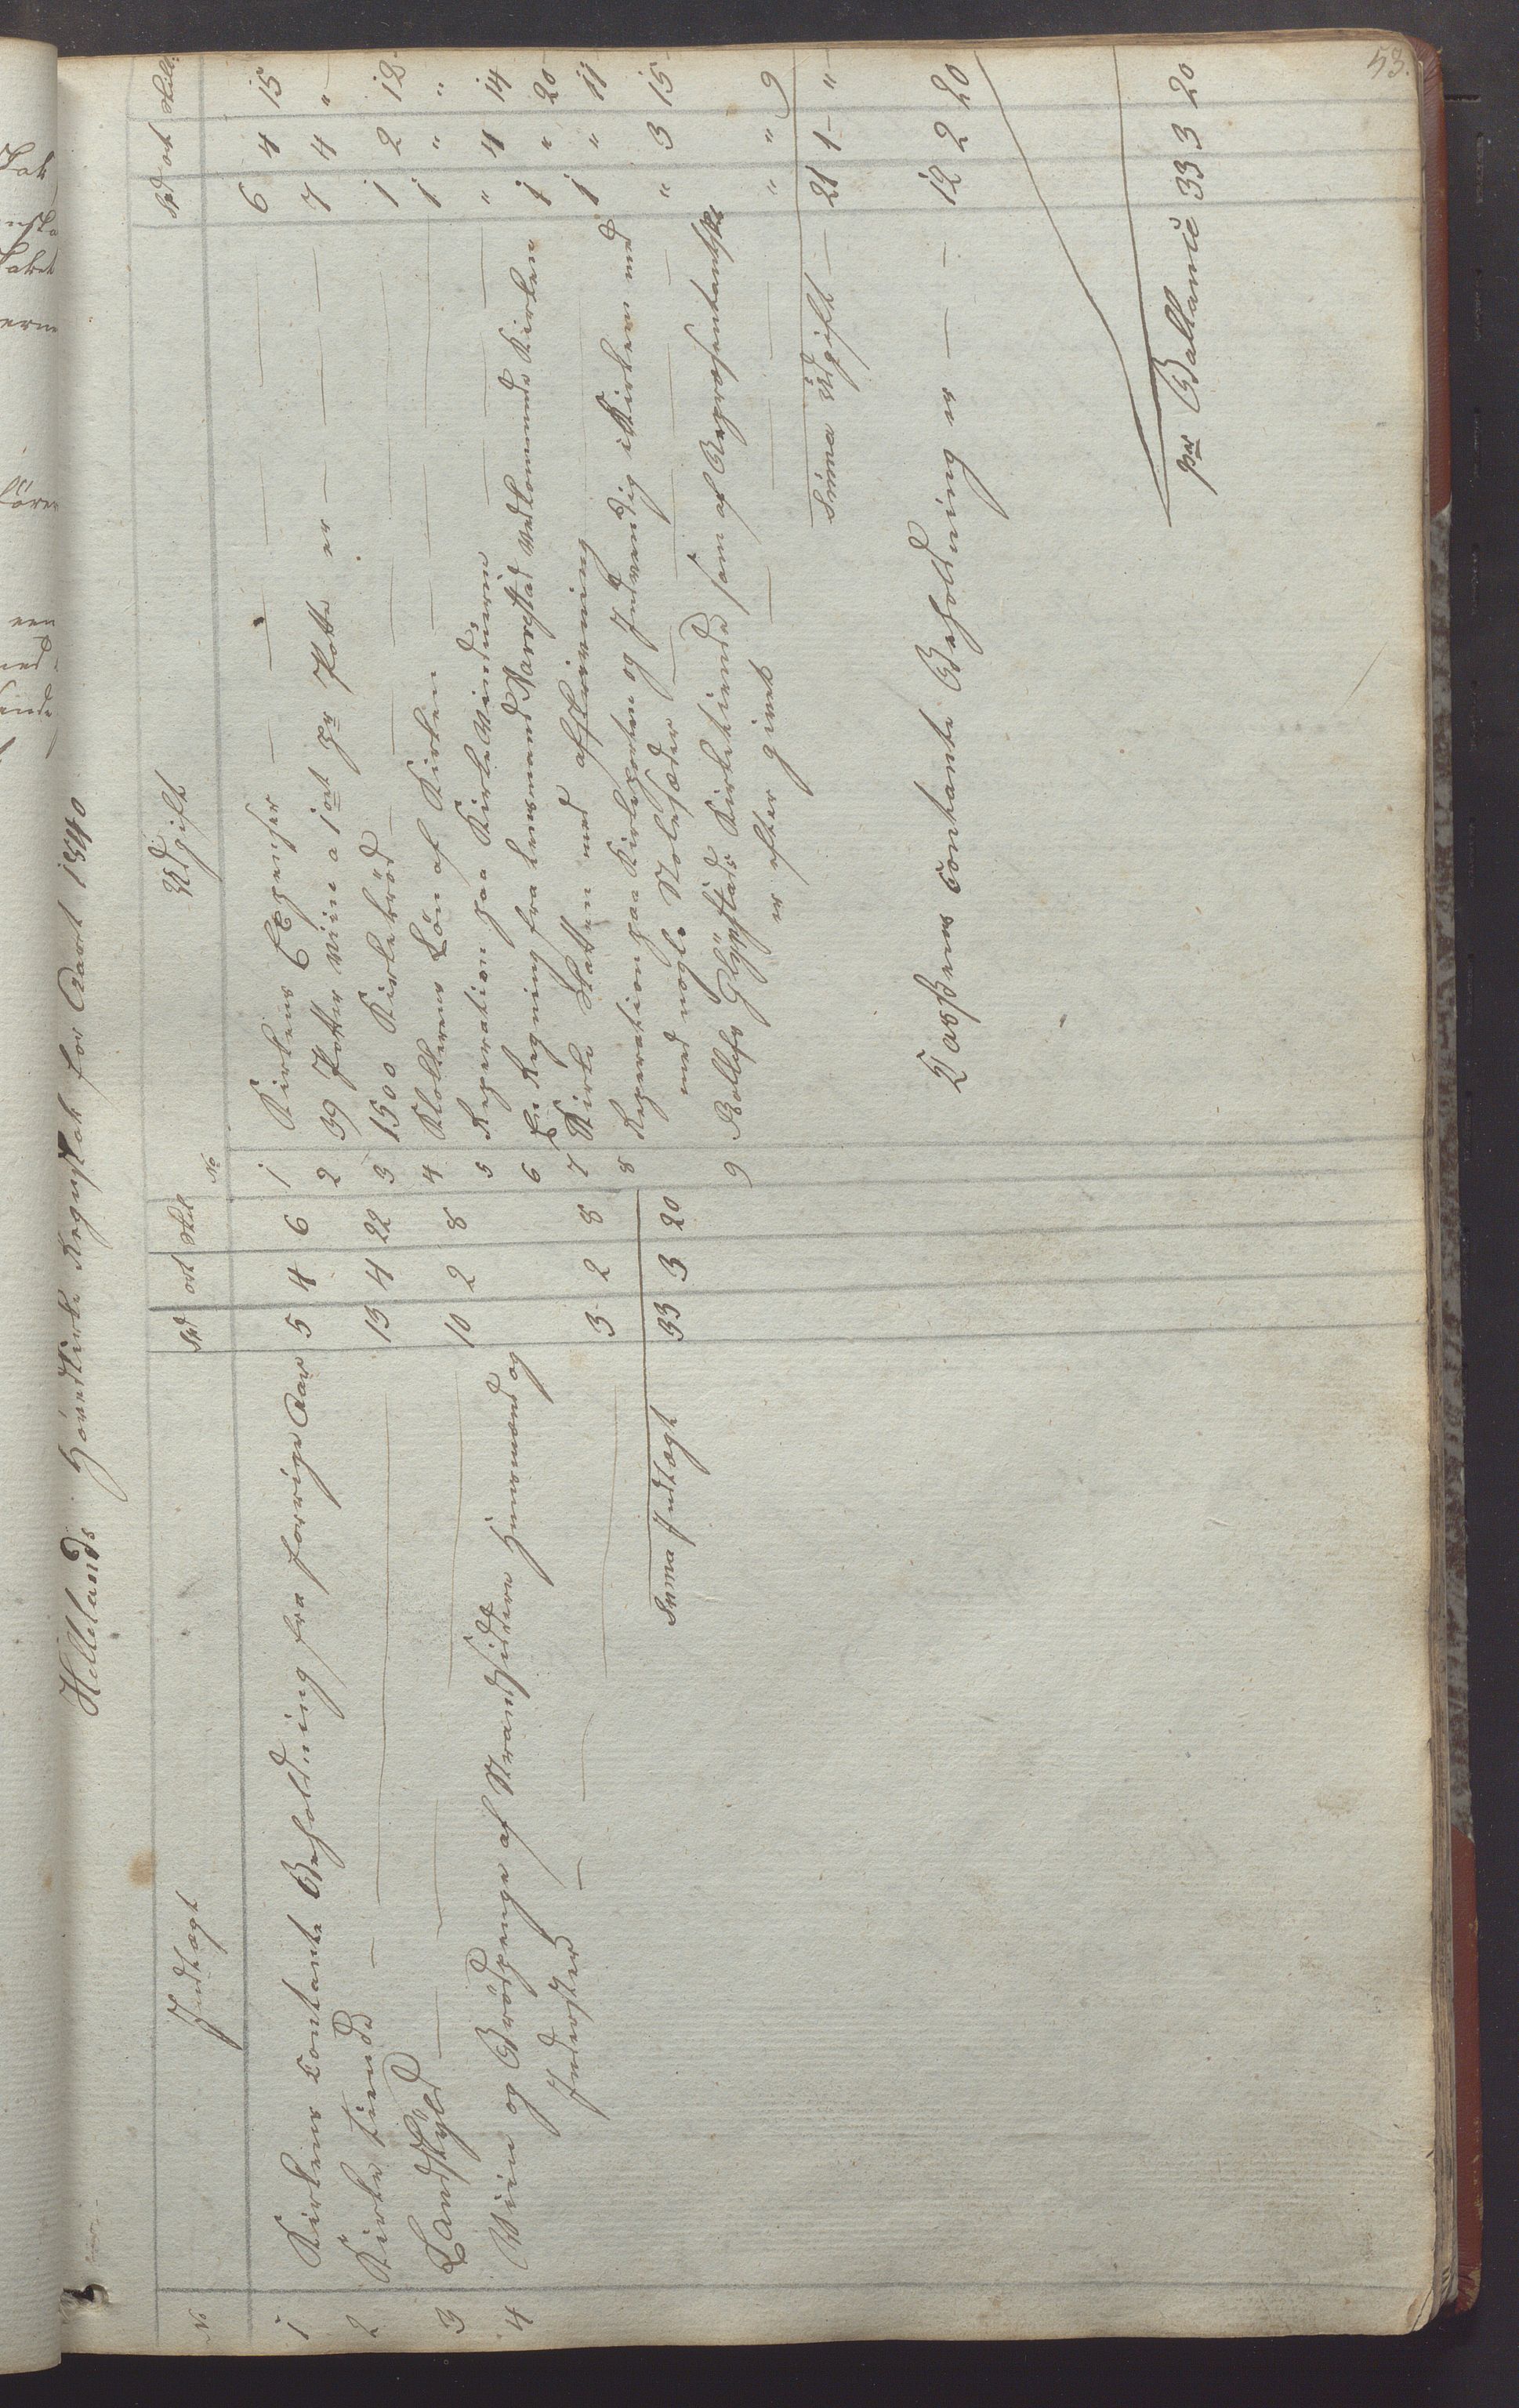 53.
Hellelands Hovedkirke Regnskab for Aaret 1840
No Indtægt Spd ort Skil
1 Kirkens Contante Beholdning fra forrige Aar 5 4 6
2 Kirke Tiende 13 4 22
3 Landskyld 10 2 8
4 Viin og Brødpenge af Strandsiddere Huusmænd og
Inderster 3 2 8
Suma Indtægt 33 3 20
No Udgift Spd ort Skill:
1 Kirkens Expenser 6 4 15
2 39 Potter Viin a 1 ort pr Potte er 7 4 "
3 1500 Kirkebrød 1 2 12
4 Klokkerens Løn af Kirken 1 " "
5 Reperation paa Kirke Vinduerne " 4 14
6 En Regning fra Lensmand Navrestad Vedkommende Kirken 1 " 20
7 Kirke Skatten med afskrivning 1 " 11
8 Reperation paa Kirkeporten og Indvendig i Kirken med
med nogle Stolesæder " 3 15
9 Rollefs Gløpstads Kirketiende som af Repræsentantskb
er efter givet " " 9
Suma Udgift 21 1 "
Cassens Contante Beholdning er 12 2 20
pr Ballance 33 3 20